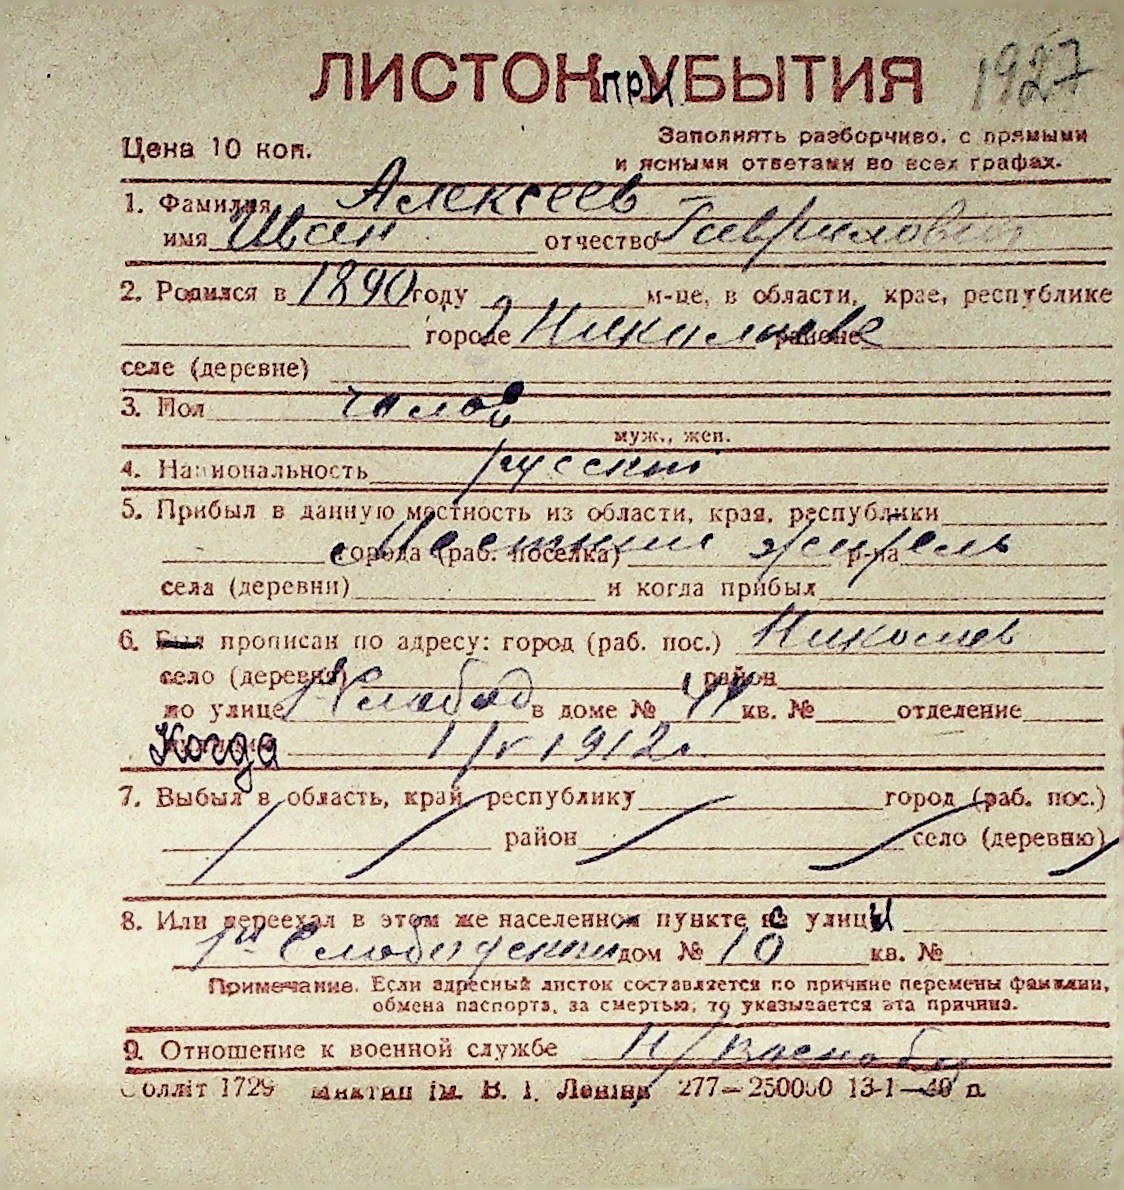 1927
ЛИСТОК при УБЫТИЯ
Цена 10 коп.
Заполнять разборчиво, с прямыми
и ясными ответами во всех графах.
1. Фамилия Алексеев
имя Иван отчество Гаврилович
2. Родился в 1890 году м-це, в области, крае, республике
городе г Николаеве районе
селе (деревне)
3. Пол
муж., жен.
4. Национальность русский
5. Прибыл в данную местность из области, края, республики
города (раб. поселка) Местный житель р-на
села (деревни) и когда прибыл
6. Был прописан по адресу: город (раб. пос.) Николаев
село (деревня) район
по улице 1 Слобод в доме № 44 кв. № отделение
Когда 1912г
7. Выбыл в область, край, республику город (раб. пос.)
район село (деревню)
8. Или переехал в этом же населенном пункте с улицы
1я Слободская дом № 10 кв. №
Примечание. Если адресный листок составляется по причине перемены фамилии,
обмена паспорта, за смертью, то указывается эта причина.
9. Отношение к военной службе Н/Военнооб
Соллiт 1729 ім. В. І. Леніна 277—250000 13-1—40 р.